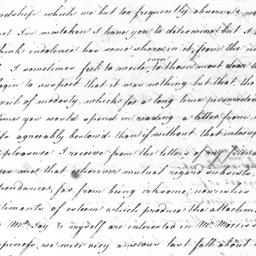 ndship which we but too frequently observe & me
at I'm mistaken I leave you to determine but I b
think indolence has some share in it, from the i
I sometimes feel to write, even to those most dear to
begin to suspect that it was nothing but that, the
of modesty, which for a long time prevented
time you would spend in reading a letter from m
ss agreably bestow'd than if without that interrup
pleasure I receive from the letters of my friend
me that wherever mutual regard subsists,
pondence, far from being irksome, nourishes
timents of esteem which produce the attachme
Mrs Jay & myself are interested in Mr Morris's
happiness, we were very anxious last fall about